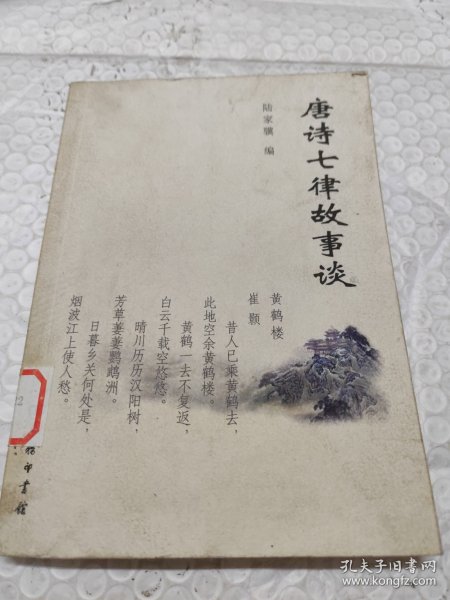 唐诗七律故事谈
陆家骥 编
黄鹤楼
崔颢
昔人已乘黄鹤去，
此地空余黄鹤楼。
黄鹤一去不复返，
白云千载空悠悠。
晴川历历汉阳树，
芳草萋萋鹦鹉洲。
日暮乡关何处是，
烟波江上使人愁。
印书馆
孔夫子旧书网
www.kongfz.com